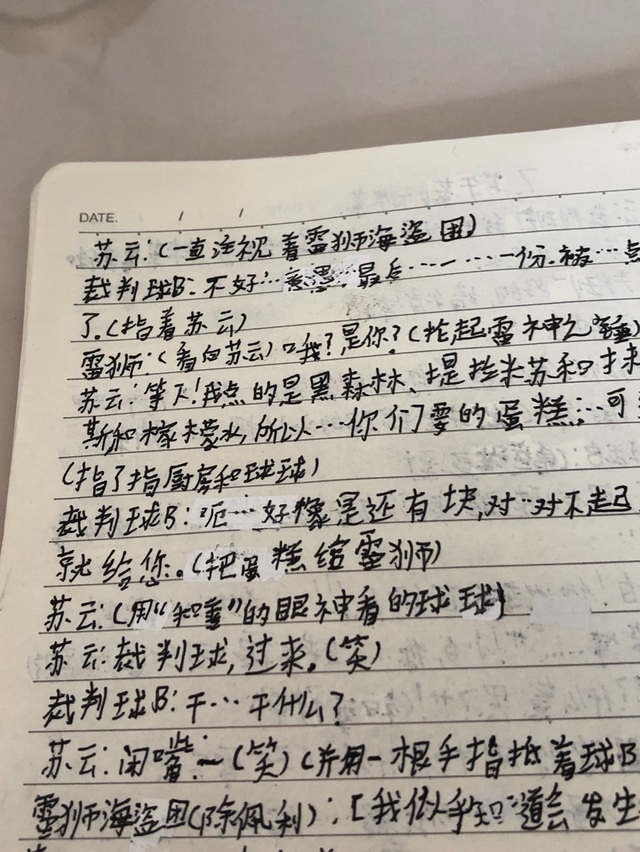 DATE. / /
苏云:(一直注视着雷狮海盗团)
裁判球B:不好…意思…最后……一份.被…点
了.(指着苏云)
雷狮:(看向苏云)哦?是你?(抡起雷神之锤)
苏云:等下!我点的是黑森林、提拉米苏和
斯和柠檬水,所以…你们要的蛋糕…可
(指了指厨房和球球)
裁判球B:呃…好像是还有块,对…对不起
就给您。(把蛋糕给雷狮)
苏云:(用“和善”的眼神看的球球)
苏云:裁判球,过来。(笑)
裁判球B:干…干什么?
苏云:闭嘴~(笑)(并用一根手指抵着球B
雷狮海盗团(除佩利):[我似乎知道会发生